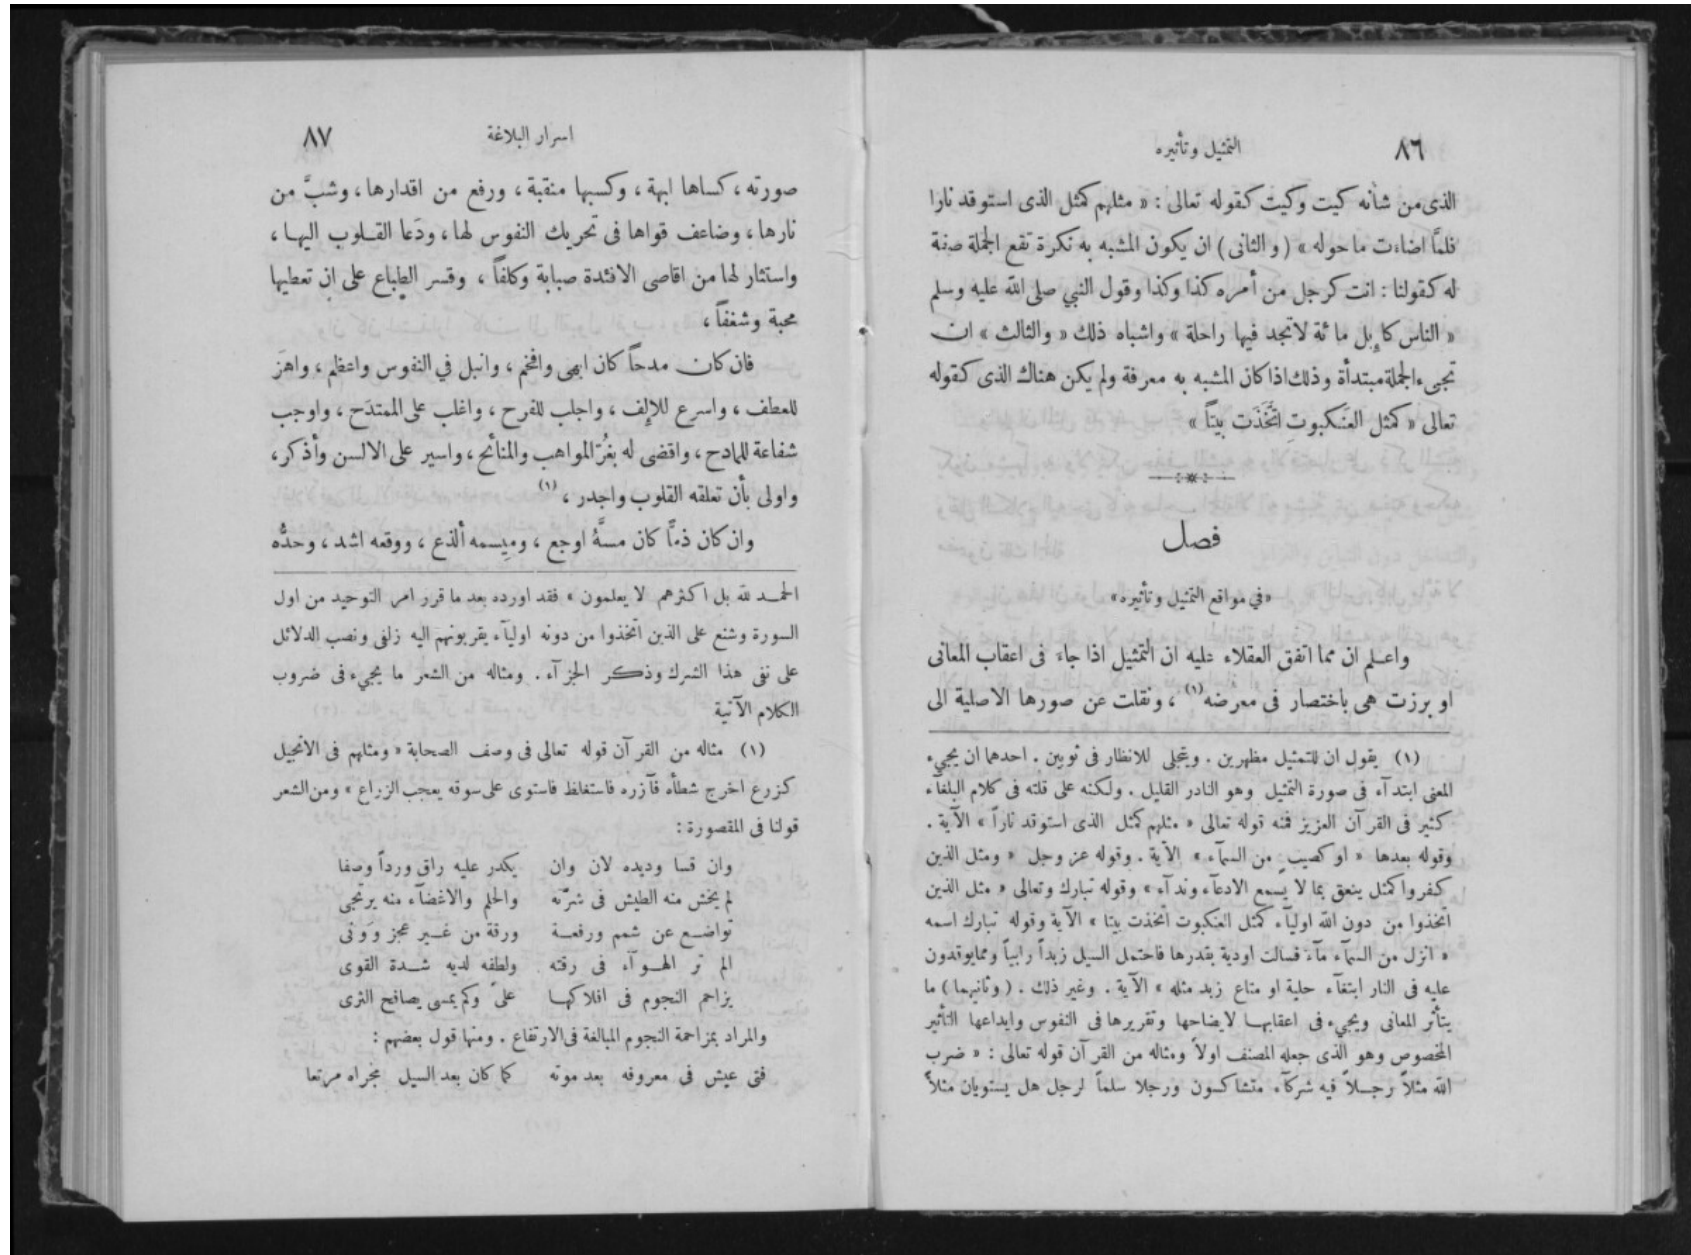 ٨٦ التمثيل وتأثيره
الذى من شأنه كيت وكيت كقوله تعالى : « مثلهم كمثل الذى استوقد نارا
فلمَّا اضاءت ما حوله » ( والثانى ) ان يكون المشبه به نكرة تقع الجملة صفة
له كقولنا : انت كرجل من أمره كذا وكذا وقول النبي صلى الله عليه وسلم
« الناس كإبل مائة لا تجد فيها راحلة » واشباه ذلك « والثالث » ان
تجىء الجملة مبتدأة وذلك اذا كان المشبه به معرفة ولم يكن هناك الذى كقوله
تعالى « كمثل العَنكبوتِ اتَّخَذَت بيتاً »
فصل
« في مواقع التمثيل وتأثيره »
واعلم ان مما اتفق العقلاء عليه ان التمثيل اذا جاءَ فى اعقاب المعانى
او برزت هى باختصار فى معرضه (١) ، ونقلت عن صورها الاصلية الى
(١) يقول ان للتمثيل مظهرين . ويتجلى للانظار فى ثوبين . احدهما ان يجيء
المعنى ابتدآء فى صورة التمثيل وهو النادر القليل . ولكنه على قلته فى كلام البلغآء
كثير فى القرآن العزيز فمنه قوله تعالى « مثلهم كمثل الذى استوقد ناراً » الآية .
وقوله بعدها « او كصيبٍ من السمآء » الآية . وقوله عز وجل « ومثل الذين
كفروا كمثل ينعق بما لا يسمع الادعآء وندآء » وقوله تبارك وتعالى « مثل الذين
اتخذوا من دون الله اوليآء كمثل العنكبوت اتخذت بيتا » الآية وقوله تبارك اسمه
« انزل من السمآء مآءً فسالت اودية بقدرها فاحتمل السيل زبداً رابياً ومما يوقدون
عليه فى النار ابتغآء حلية او متاع زبد مثله » الآية . وغير ذلك . ( وثانيهما ) ما
يتأثر المعانى ويجىء فى اعقابها لايضاحها وتقريرها فى النفوس وايداعها التأثير
المخصوص وهو الذى جعله المصنف اولاً ومثاله من القرآن قوله تعالى : « ضرب
الله مثلاً رجلاً فيه شركآء متشاكسون ورجلا سلماً لرجل هل يستويان مثلاً
اسرار البلاغة ٨٧
صورته ، كساها ابهة ، وكسبها منقبة ، ورفع من اقدارها ، وشبَّ من
نارها ، وضاعف قواها فى تحريك النفوس لها ، ودَعا القلوب اليها ،
واستثار لها من اقاصى الافئدة صبابة وكلفاً ، وقسر الطباع على ان تعطيها
محبة وشغفاً ،
فان كان مدحاً كان ابهى وافخم ، وانبل في النفوس واعظم ، واهزَ
للعطف ، واسرع للإلف ، واجلب للفرح ، واغلب على الممتدَح ، واوجب
شفاعة للمادح ، واقضى له بغُرّ المواهب والمنائح ، واسير على الالسن وأذكر ،
واولى بأن تعلقه القلوب واجدر ، (١)
وان كان ذمًّا كان مسَّهُ اوجع ، ومِيسمه ألذع ، ووقعه اشد ، وحدُّه
الحمد لله بل اكثرهم لا يعلمون » فقد اورده بعد ما قرر امر التوحيد من اول
السورة وشنع على الذين اتخذوا من دونه اوليآء يقربونهم اليه زلفى ونصب الدلائل
على نفى هذا الشرك وذكر الجزآء . ومثاله من الشعر ما يجيء فى ضروب
الكلام الآتية
(١) مثاله من القرآن قوله تعالى فى وصف الصحابة « ومثلهم فى الانجيل
كزرع اخرج شطأه فآزره فاستغلظ فاستوى على سوقه يعجب الزراع » ومن الشعر
قولنا فى المقصورة :
وان قسا وديده لان وان يكدر عليه راق ورداً وصفا
لم يخش منه الطيش فى شرّته والحلم والاغضآء منه يرتجى
تواضع عن شمم ورفعة ورقة من غير عجز وَوَنى
الم تر الهوآء فى رقته ولطفه لديه شدة القوى
يزاحم النجوم فى افلاكها علىً وكم يمسى يصافح الثرى
والمراد بمزاحمة النجوم المبالغة فى الارتفاع . ومنها قول بعضهم :
فتى عيش فى معروفه بعد موته كما كان بعد السيل مجراه مرتعا